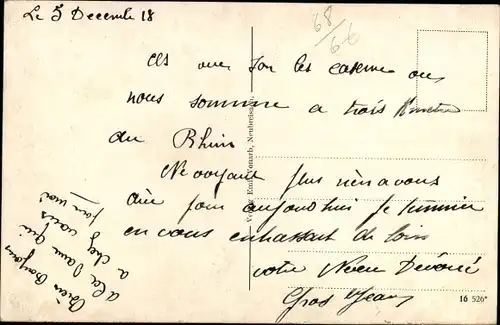 Le 5 Decembe 18
68/66
Ces vue son les caserne ou
nous somme a trois
du Rhin
Ne voyant plus rien a vous
dire pour aujourdhui je termine
en vous enbrassant de loin
votre Neveu Dévoué
Gros Jean
Bien Bonjour
a la Dame qui
a chez vous
pour moi
Verlag Emil Hartmann, Neubreisach
16 526*